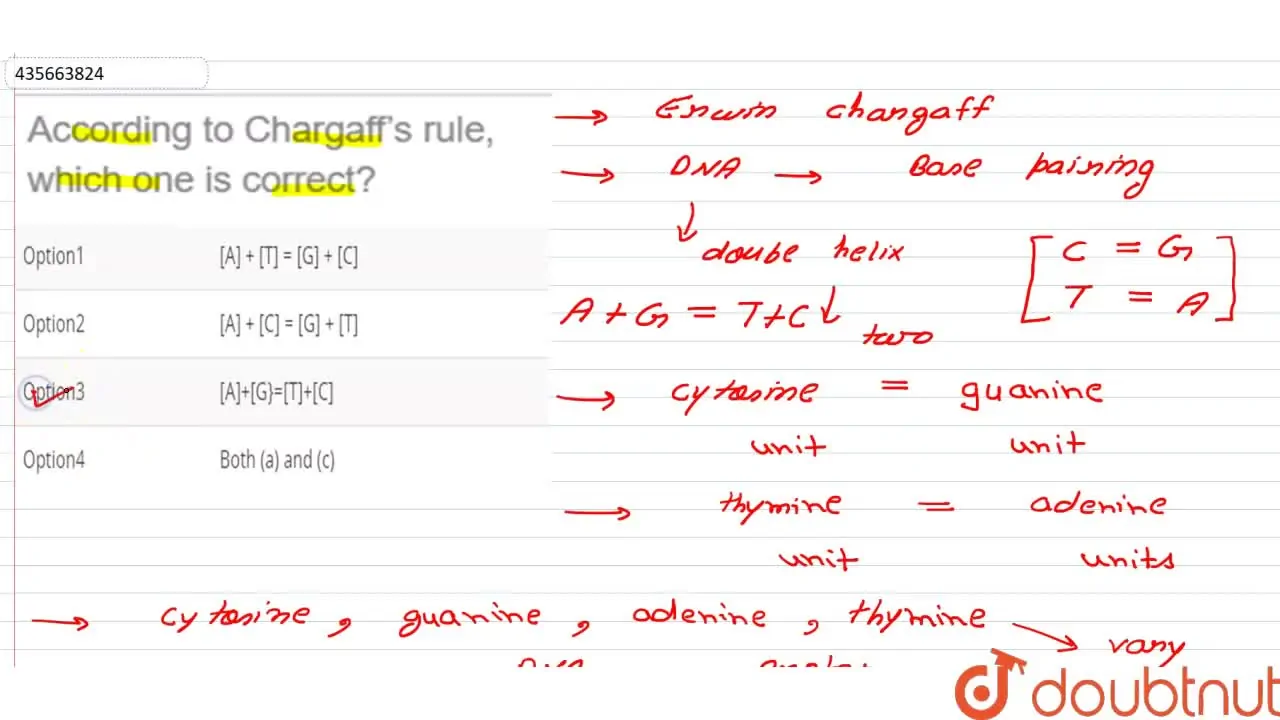 435663824
According to Chargaff's rule,
which one is correct?
Option1 [A] + [T] = [G] + [C]
Option2 [A] + [C] = [G] + [T]
Option3 [A]+[G}=[T]+[C]
Option4 Both (a) and (c)
→ Erwin Changaff
→ DNA → Base pairing
↓
doube helix
[ C = G
T = A ]
A + G = T+C ↓
two
→ cytosine = guanine
unit unit
→ thymine = adenine
unit units
→ cytosine, guanine, adenine, thymine → vary
DNA
doubtnut